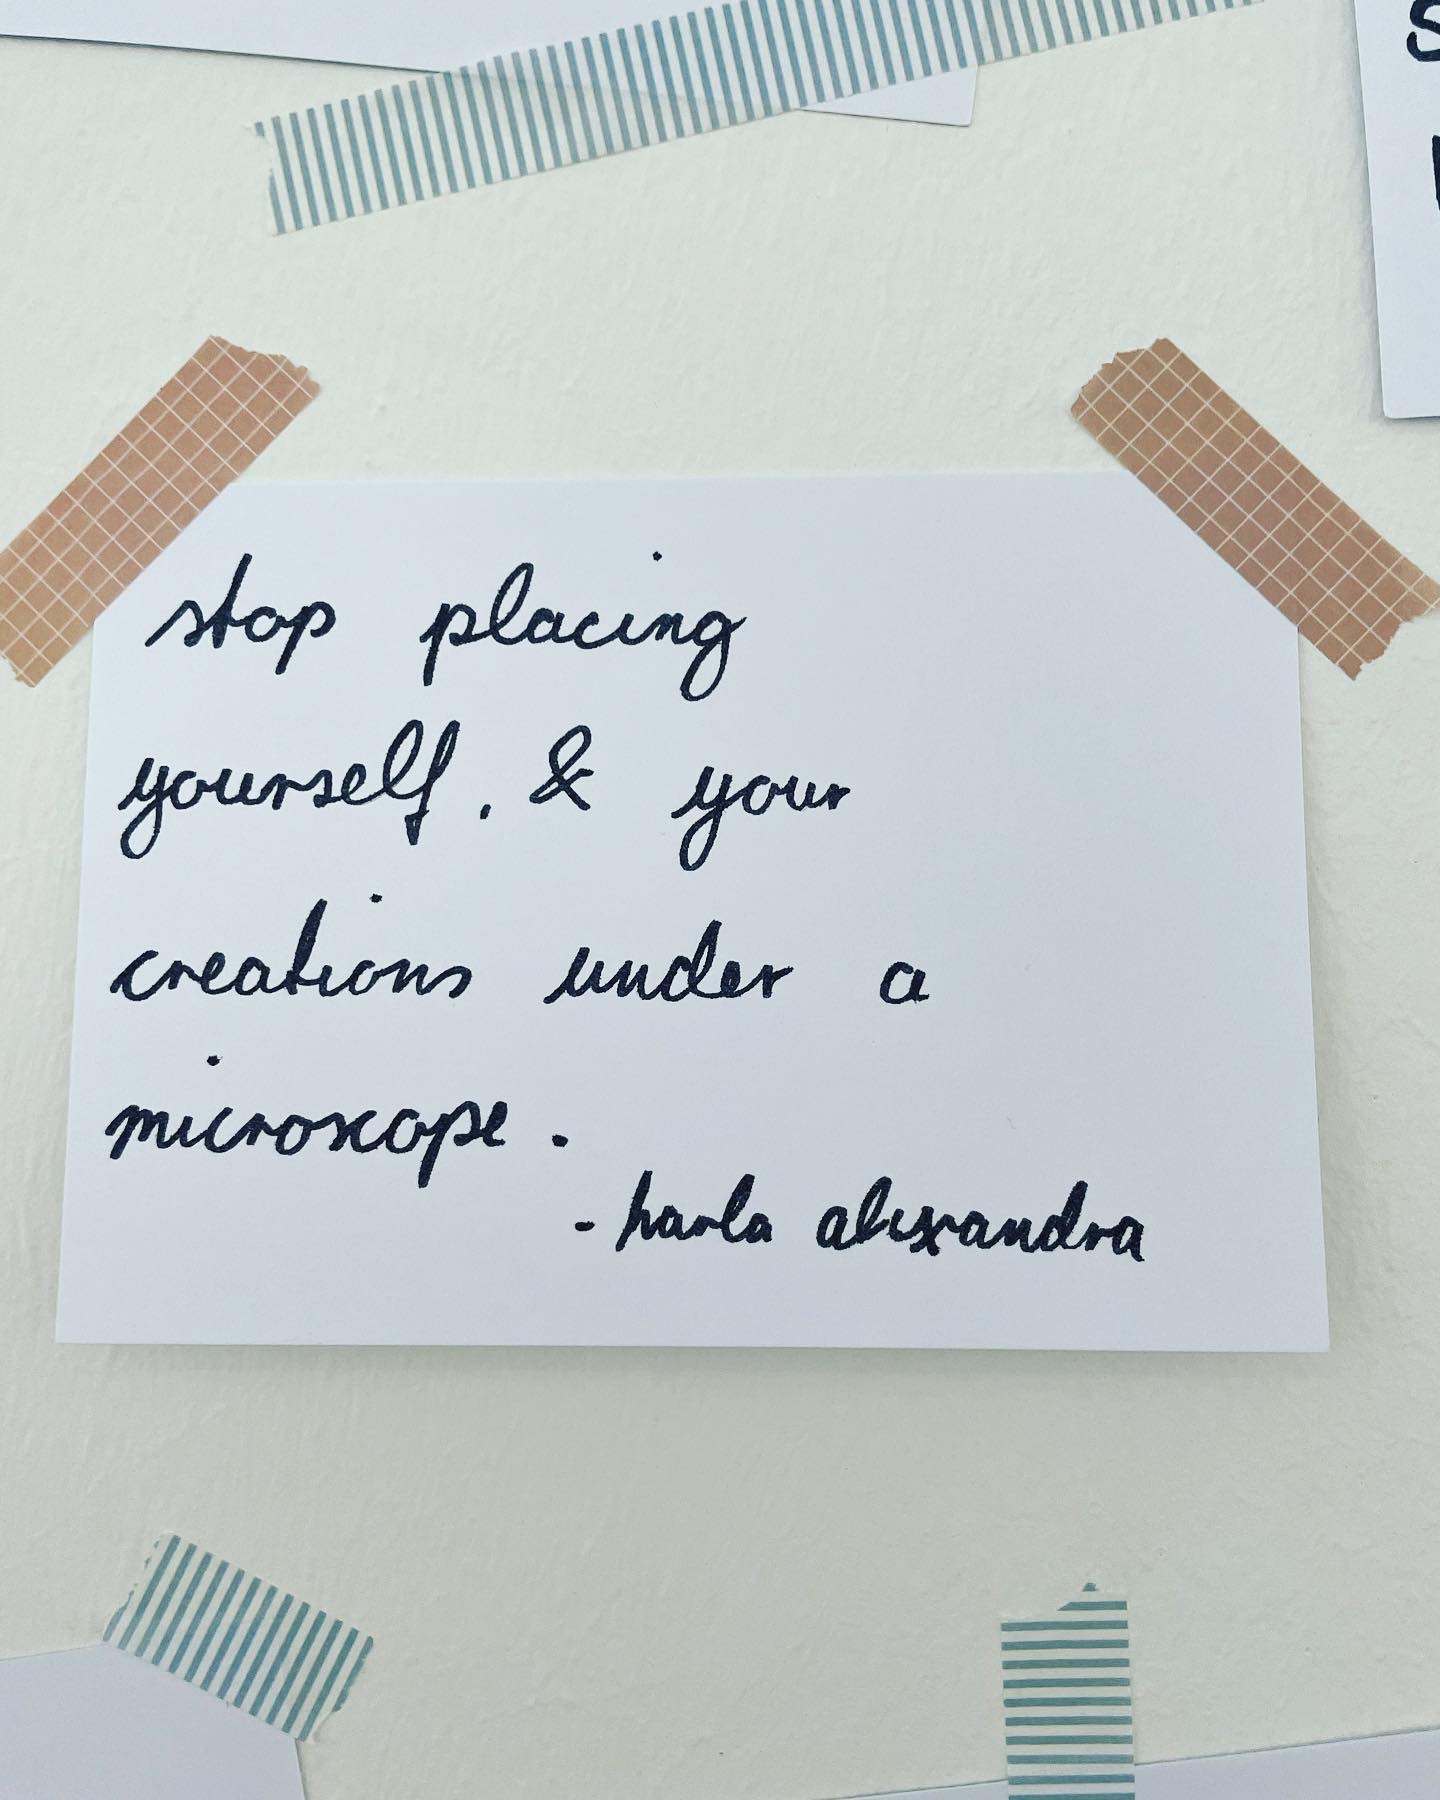 stop placing
yourself, & your
creations under a
microscope.
- harla alexandra
S